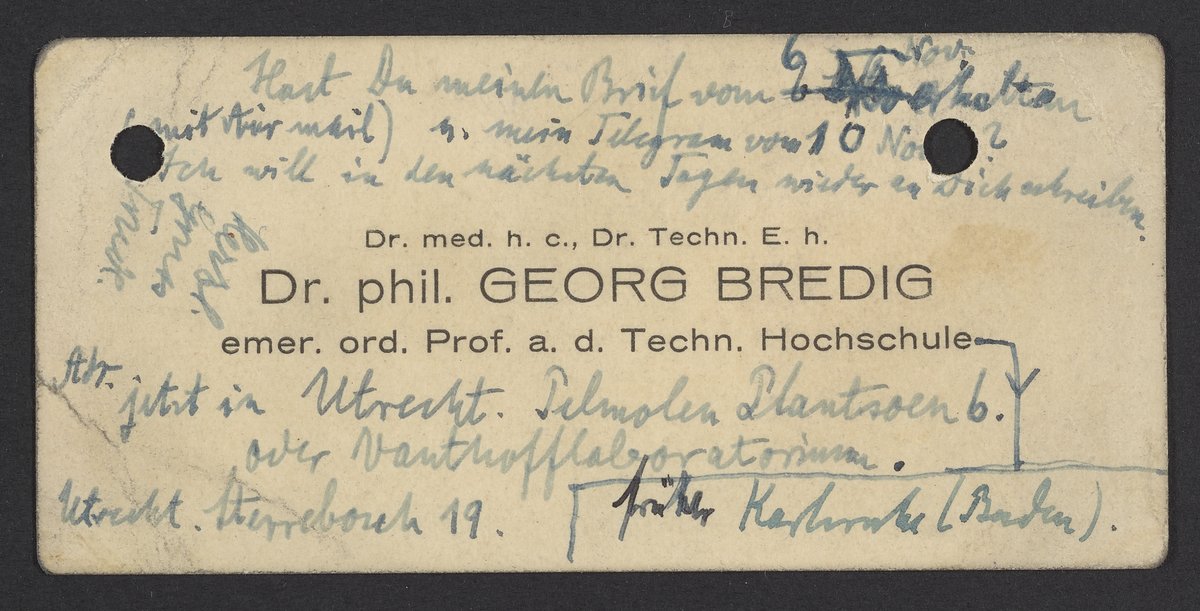 Hast Du meinen Brief vom 6 Nov. erhalten
(mit Air mail) u. mein Telegram vom 10 Nov ?
Ich will in den nächsten Tagen wieder an Dich schreiben.
Dr. med. h. c., Dr. Techn. E. h.
Dr. phil. GEORG BREDIG
emer. ord. Prof. a. d. Techn. Hochschule
Adr.
jetzt in Utrecht. Pelmolen Plantsoen 6.
oder Vanthofflaboratorium.
Utrecht. Sterrebosch 19.
früher Karlsruhe (Baden).